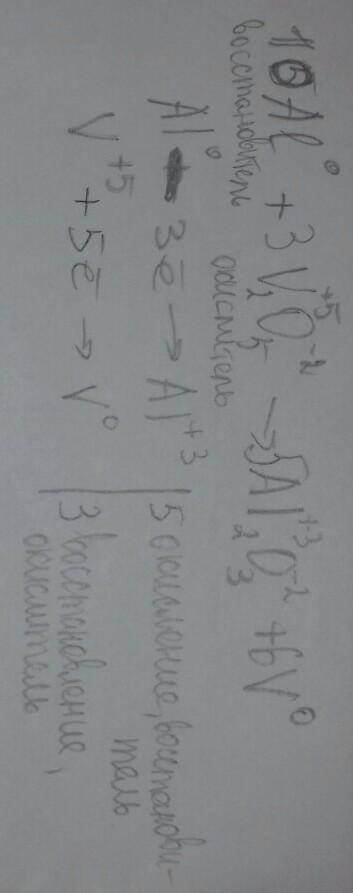 10Al⁰ + 3V₂⁺⁵O₅⁻² → 5Al₂⁺³O₃⁻² + 6V⁰
восстановитель окислитель
Al⁰ - 3ē → Al⁺³ | 5 окисление, восстанови-
тель
V⁺⁵ + 5ē → V⁰ | 3 восстановление,
окислитель